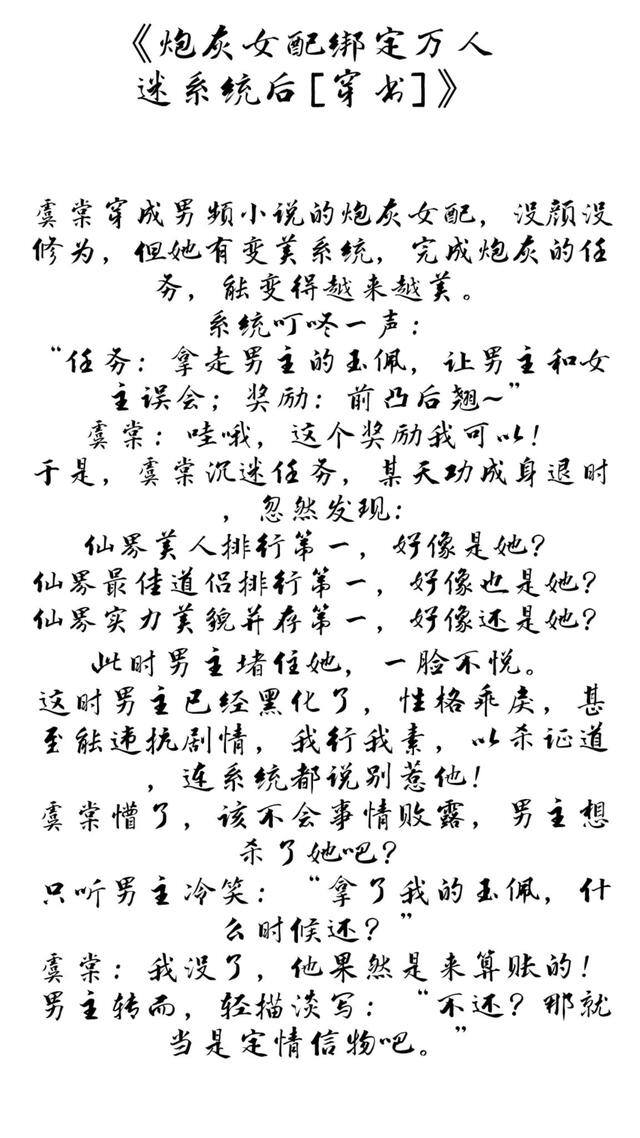 《炮灰女配绑定万人
迷系统后[穿书]》
虞棠穿成男频小说的炮灰女配，没颜没
修为，但她有变美系统，完成炮灰的任
务，能变得越来越美。
系统叮咚一声：
“任务：拿走男主的玉佩，让男主和女
主误会；奖励：前凸后翘~”
虞棠：哇哦，这个奖励我可以！
于是，虞棠沉迷任务，某天功成身退时
，忽然发现：
仙界美人排行第一，好像是她？
仙界最佳道侣排行第一，好像也是她？
仙界实力美貌并存第一，好像还是她？
此时男主堵住她，一脸不悦。
这时男主已经黑化了，性格乖戾，甚
至能违抗剧情，我行我素，以杀证道
，连系统都说别惹他！
虞棠懵了，该不会事情败露，男主想
杀了她吧？
只听男主冷笑：“拿了我的玉佩，什
么时候还？”
虞棠：我没了，他果然是来算账的！
男主转而，轻描淡写：“不还？那就
当是定情信物吧。”